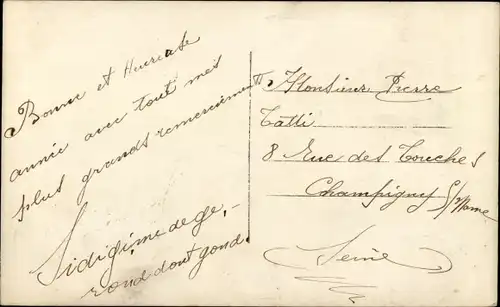 Bonne et Heureuse
année avec tout mes
plus grands remerciements
Monsieur Pierre
Tatti
8 Rue des Touches
Champigny s/Marne
Seine